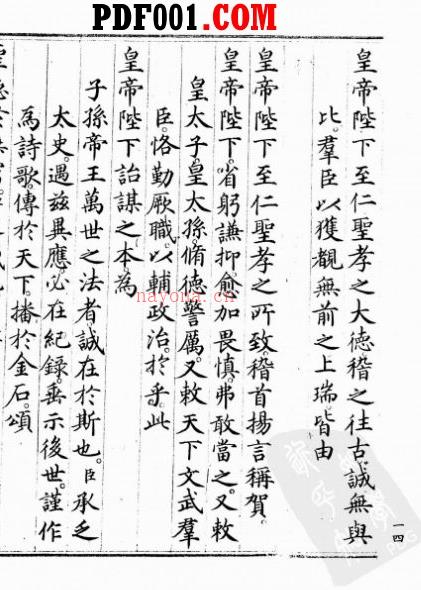 PDF001.COM
皇帝陛下至仁聖孝之大德稽之往古。誠無與
比。羣臣以獲覩無前之上瑞。皆由
皇帝陛下至仁聖孝之所致。稽首揚言稱賀。
皇帝陛下。省躬謙抑。愈加畏慎。弗敢當之。又敕
皇太子。皇太孫。脩德警厲。又敕天下文武羣
臣。恪勤厥職。以輔政治。於乎。此
皇帝陛下詒謀之本。為
子孫帝王萬世之法者。誠在於斯也。臣承乏
太史。遇茲異應。必在紀録。垂示後世。謹作
為詩歌。傳於天下。播於金石。頌
nayona.cn
一四
PDG